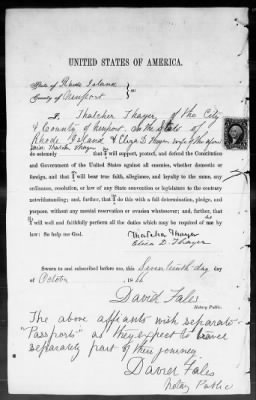 UNITED STATES OF AMERICA.
State of Rhode Island
County of Newport } ss
I, Thatcher Thayer, of the City
& County of Newport, in the State of
Rhode Island & Eliza D Thayer wife of the afore
said Thatcher Thayer
do solemnly that I will support, protect, and defend the Constitution
and Government of the United States against all enemies, whether domestic
or foreign, and that I will bear true faith, allegiance, and loyalty to the same, any
ordinance, resolution, or law of any State convention or legislature to the contrary
notwithstanding; and further, that I do this with a full determination, pledge, and
purpose, without any mental reservation or evasion whatsoever; and further, that
I will well and faithfully perform all the duties which may be required of me by
law: So help me God.
Thatcher Thayer
Eliza D. Thayer
Sworn to and subscribed before me, this Seventeenth day
of October 1866
David Fales
Notary Public.
The above affiants wish separate
"Passports" as they expect to travel
separately part of their journey.
David Fales
Notary Public